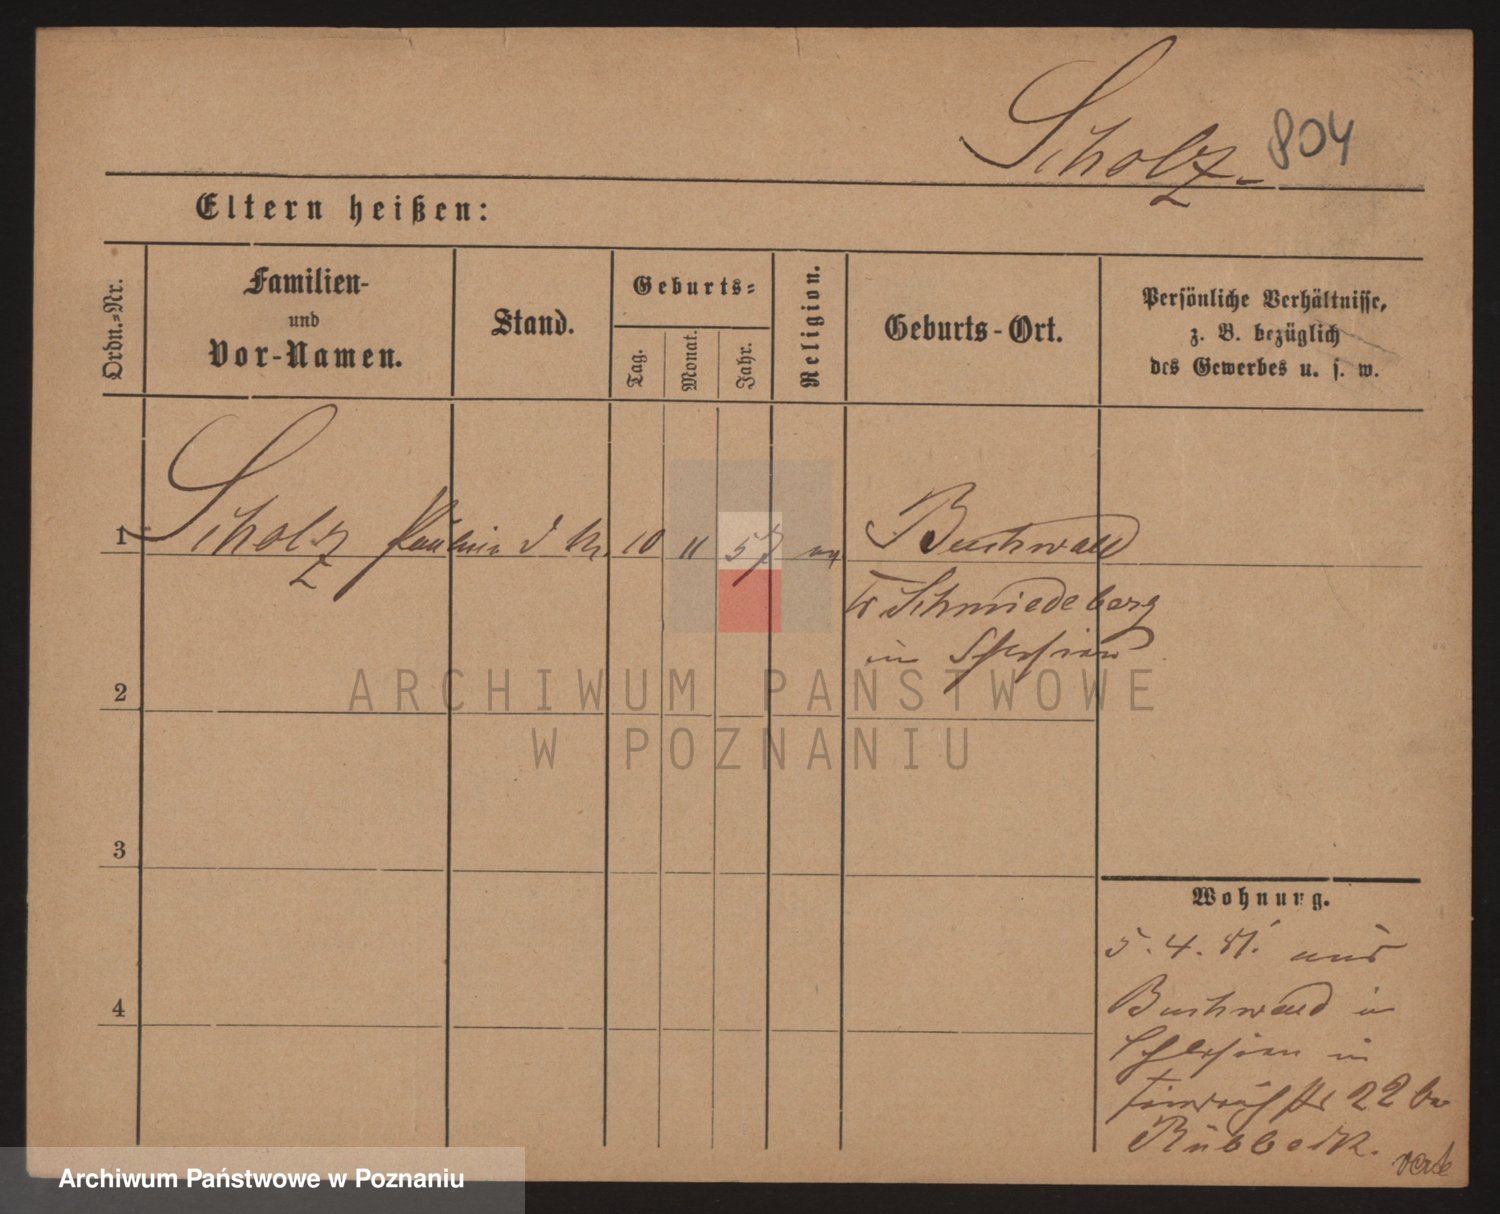 Scholz
804
Eltern heißen:
Ordn.=Nr.
Familien-
und
Vor-Namen.
Stand.
Geburts=
Tag.
Monat.
Jahr.
Religion.
Geburts-Ort.
Persönliche Verhältnisse,
z. B. bezüglich
des Gewerbes u. s. w.
1 Scholz Paulin 10 11 57 Buchwald
Schmiedeberg
in Schlesien
2
3
4
Wohnung.
5. 4. 81. aus
Buchwald in
Schlesien in
22
vert
ARCHIWUM PAŃSTWOWE
W POZNANIU
Archiwum Państwowe w Poznaniu